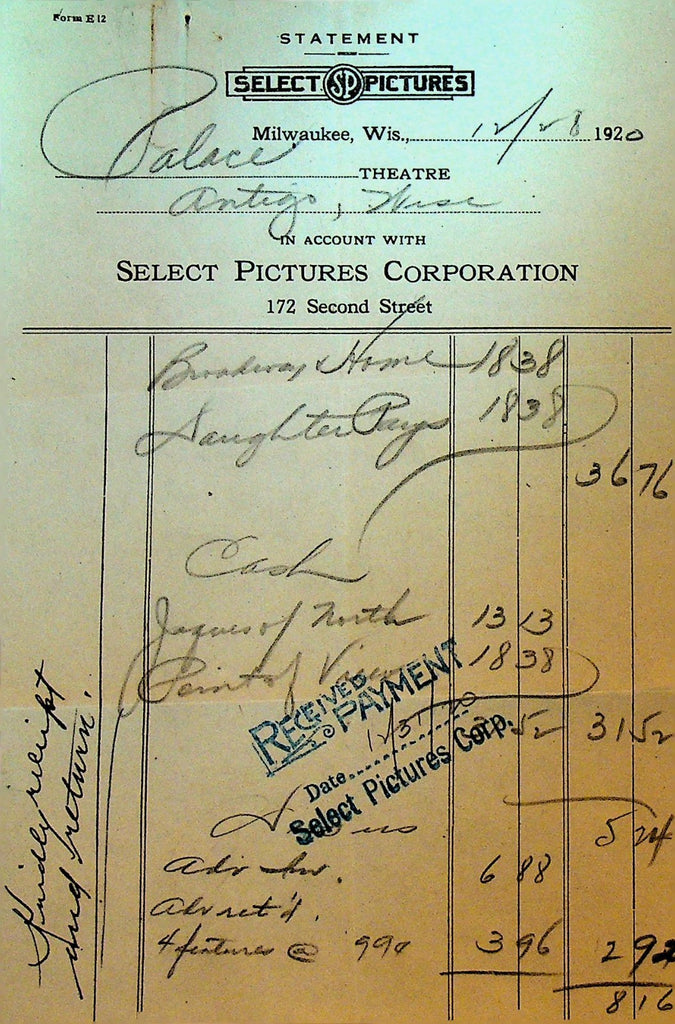 Form E 12
STATEMENT
SELECT SP PICTURES
Milwaukee, Wis., 12/28 1920
Palace THEATRE
Antigo, Wisc
IN ACCOUNT WITH
SELECT PICTURES CORPORATION
172 Second Street
Broadway & Home 18 38
Daughter Pays 18 38
36 76
Cash
Jaques of North 13 13
Point of View 18 38
31 52 31 52
RECEIVED PAYMENT
Date 12 31 20
Select Pictures Corp.
5 24
Adv inv. 6 88
Adv ret'd.
4 features @ 99¢ 3 96 2 92
8 16
Kindly receipt
and return.